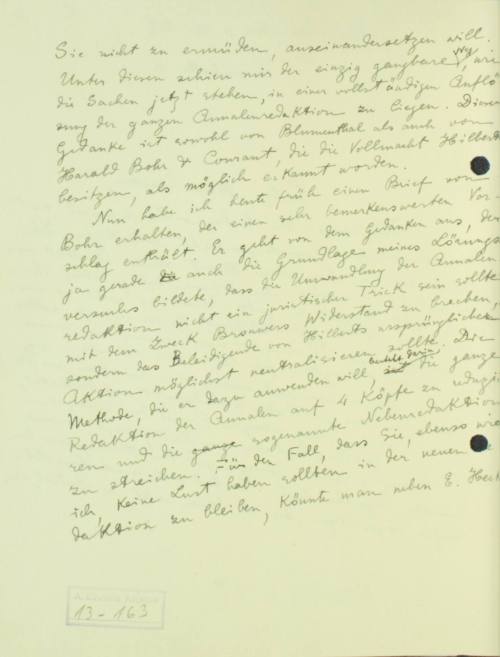 Sie nicht zu ermüden, auseinandersetzen will.
Unter diesen schien mir der einzig gangbare Weg, wie
die Sachen jetzt stehen, in einer vollständigen Auflö
sung der ganzen Annalenredaktion zu liegen. Dieser
Gedanke ist sowohl von Blumenthal als auch von
Harald Bohr & Courant, die die Vollmacht Hilberts
besitzen, als möglich erkannt worden.
Nun habe ich heute früh einen Brief von
Bohr erhalten, der einen sehr bemerkenswerten Vor-
schlag enthält. Er geht von dem Gedanken aus, der
ja gerade auch die Grundlage meines Lösungs
versuches bildete, dass die Umwandlung der Annalen
redaktion nicht ein juristischer Trick sein sollte
mit dem Zweck Brouwers Widerstand zu brechen,
sondern das Beleidigende von Hilberts ursprünglicher
Aktion möglichst neutralisieren sollte. Die
Methode, die er dazu anwenden will, besteht darin die ganze
Redaktion der Annalen auf 4 Köpfe zu reduzie
ren und die ganze sogenannte Nebenredaktion
zu streichen. Für den Fall, dass Sie, ebenso wie
ich, keine Lust haben sollten in der neuen
daktion zu bleiben, könnte man neben E. Heck
13-163